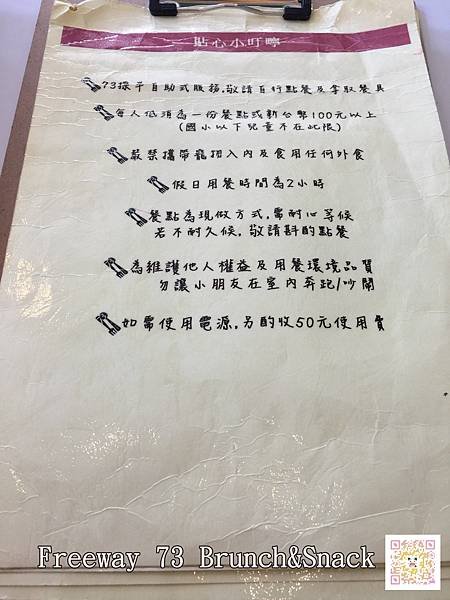 貼心小叮嚀
73採半自助式服務,敬請自行點餐及拿取餐具
每人低消為一份餐點或新台幣100元以上
(國小以下兒童不在此限)
嚴禁攜帶寵物入內及食用任何外食
假日用餐時間為2小時
餐點為現做方式,需耐心等候
若不耐久候,敬請斟酌點餐
為維護他人權益及用餐環境品質
勿讓小朋友在室內奔跑/吵鬧
如需使用電源,另酌收50元使用費
Freeway 73 Brunch&Snack